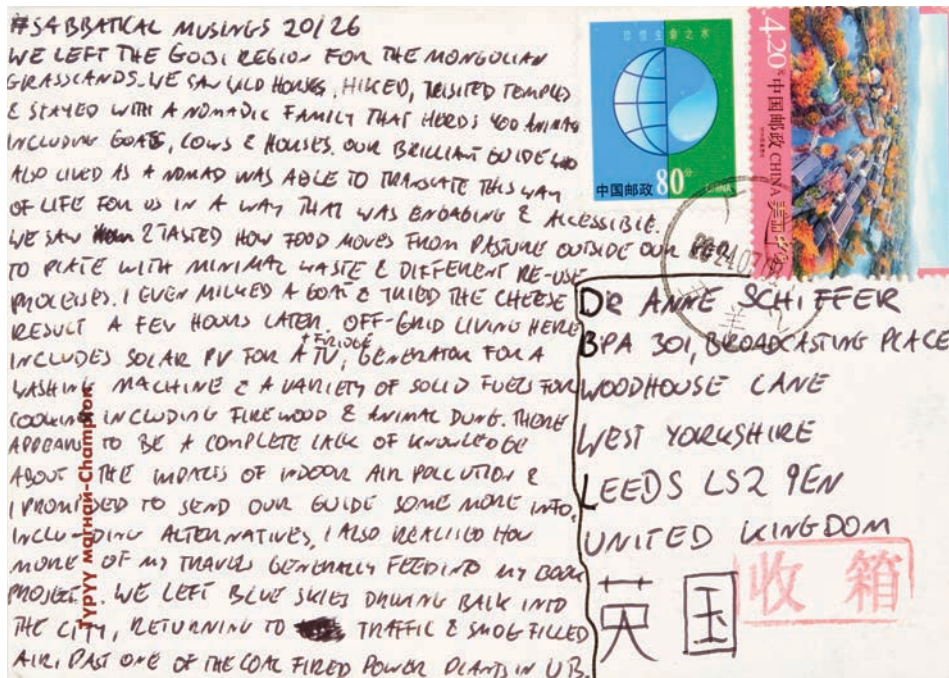 #SABBATICAL MUSINGS 20/26
WE LEFT THE GOBI REGION FOR THE MONGOLIAN
GRASSLANDS. WE SAW WILD HORSES, HIKED, VISITED TEMPLES
& STAYED WITH A NOMADIC FAMILY THAT HERDS 400 ANIMALS
INCLUDING GOATS, COWS & HORSES. OUR BRILLIANT GUIDE WHO
ALSO LIVED AS A NOMAD WAS ABLE TO TRANSLATE THIS WAY
OF LIFE FOR US IN A WAY THAT WAS ENGAGING & ACCESSIBLE.
WE SAW & TASTED HOW FOOD MOVES FROM PASTURE OUTSIDE OUR GER
TO PLATE WITH MINIMAL WASTE & DIFFERENT RE-USE
PROCESSES. I EVEN MILKED A GOAT & TRIED THE CHEESE
RESULT A FEW HOURS LATER. OFF-GRID LIVING HERE
INCLUDES SOLAR PV FOR A TV + FRIDGE, GENERATOR FOR A
WASHING MACHINE & A VARIETY OF SOLID FUELS FOR
COOKING INCLUDING FIREWOOD & ANIMAL DUNG. THERE
APPEARS TO BE A COMPLETE LACK OF KNOWLEDGE
ABOUT THE IMPACTS OF INDOOR AIR POLLUTION &
I PROMISED TO SEND OUR GUIDE SOME MORE INFO.
INCLUDING ALTERNATIVES, I ALSO REALISED HOW
MORE OF MY TRAVELS GENERALLY FEEDING MY BOOK
PROJECT. WE LEFT BLUE SKIES DRIVING BACK INTO
THE CITY, RETURNING TO TRAFFIC & SMOG FILLED
AIR, PAST ONE OF THE COAL FIRED POWER PLANTS IN UB.
ТҮРҮҮ магнай-Champion
珍惜生命之水
中国邮政 80分 CHINA
4.20元 中国邮政 CHINA
DR ANNE SCHIFFER
BPA 301, BROADCASTING PLACE
WOODHOUSE LANE
WEST YORKSHIRE
LEEDS LS2 9EN
UNITED KINGDOM
英国
收箱